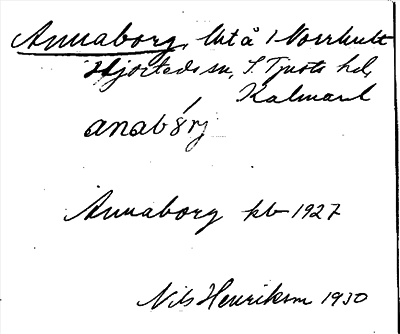 Annaborg, lht å 1 Norrhult
Hjorteds sn, S. Tjusts hd,
Kalmar l
anabórj
Annaborg kb 1927
Nils Henrikson 1930